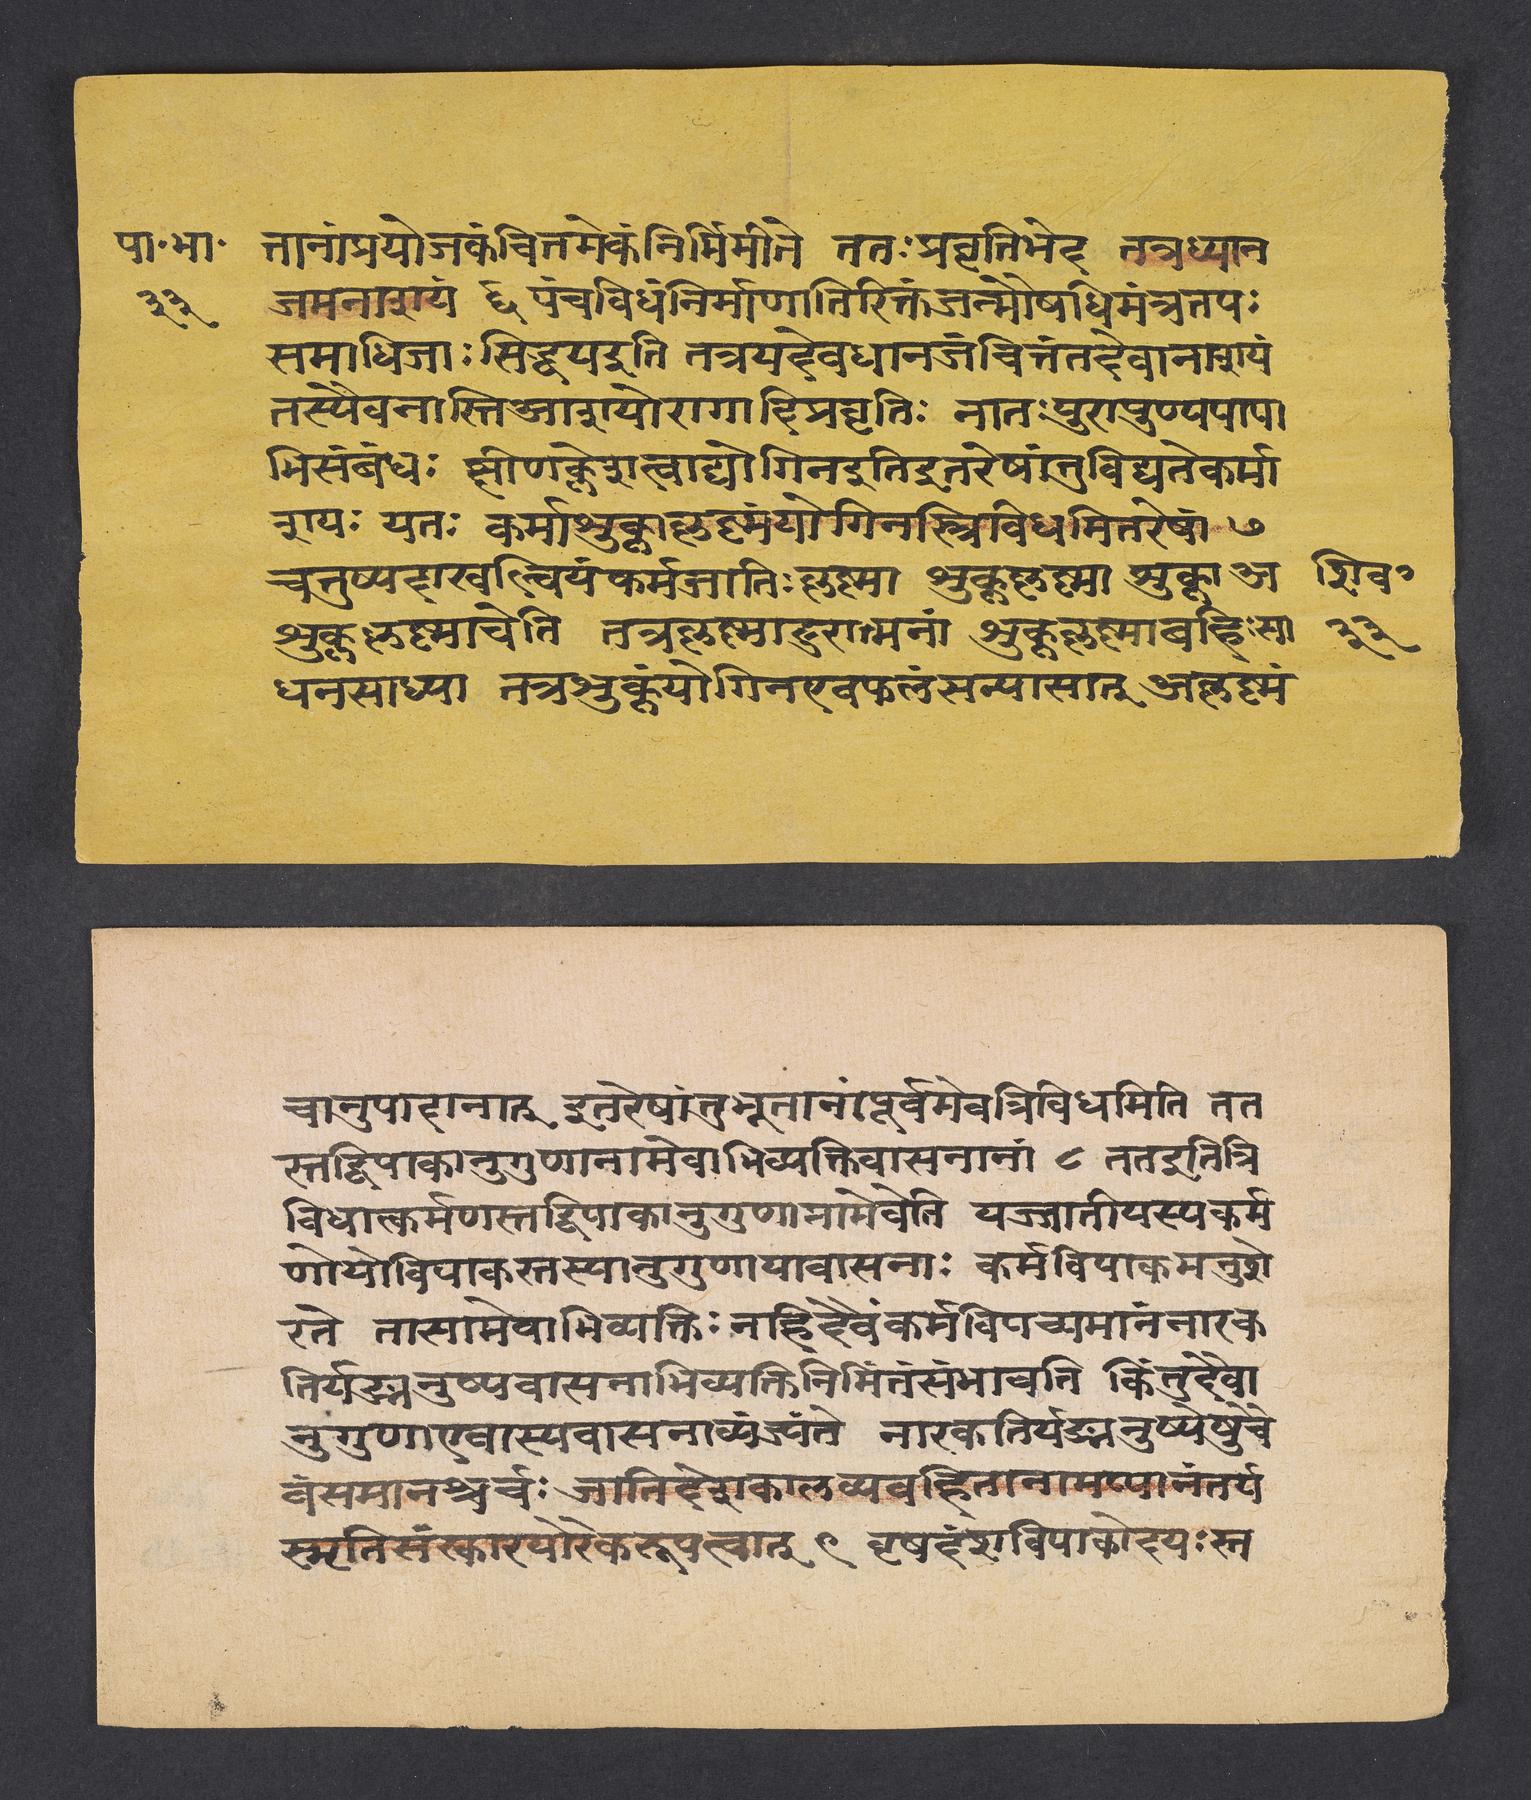 पा॰ भा॰ त्तानांप्रयोजकंचित्तमेकंनिर्मिमीते ततःप्रवृत्तिभेद तत्रध्यान
३३ जमनाशयं ६ पंचविधंनिर्माणातिरिक्तंजन्मौषधिमंत्रतपः
समाधिजाः सिद्धयइति तत्रयदेवधानजंचित्तंतदेवानाशयं
तस्यैवनास्तिआशयोरागादिप्रवृत्तिः नातःपुरापुण्यपापा
भिसंबंधः क्षीणक्लेशत्वाद्योगिनइतिइतरेषांतुविद्यतेकर्मा
शयः यतः कर्माशुक्लाकृष्णंयोगिनस्त्रिविधमितरेषां ७
चतुष्पदाखल्वियंकर्मजातिः कृष्णा शुक्लकृष्णा शुक्ला अ शिव॰
शुक्लाकृष्णाचेति तत्रकृष्णादुरात्मनां शुक्लकृष्णाबहिःसा ३३
धनसाध्या तत्रशुक्लंयोगिनएवफलंसन्यासात् अकृष्णं
चानुपादानात् इतरेषांतुभूतानांपूर्वमेवत्रिविधमिति तत
स्तद्विपाकानुगुणानामेवाभिव्यक्तिवासनानां ८ ततइतित्रि
विधात्कर्मणस्तद्विपाकानुगुणानामेवेति यज्जातीयस्यकर्म
णोयोविपाकस्तस्यानुगुणायावासनाः कर्मविपाकमनुशे
रते तासामेवाभिव्यक्तिः नहिदैवंकर्मविपच्यमानंनारक
तिर्यङ्मनुष्यवासनाभिव्यक्तिनिमिंतंसंभावति किंतुदैवा
नुगुणाएवास्यवासनाव्यंज्यंते नारकतिर्यङ्मनुष्येषुचै
वंसमानश्चर्चः जातिदेशकालव्यवहितानामप्यानंतर्य
स्मृतिसंस्कारयोरेकरूपत्वात् ९ वृषदंशविपाकोदयः स्त